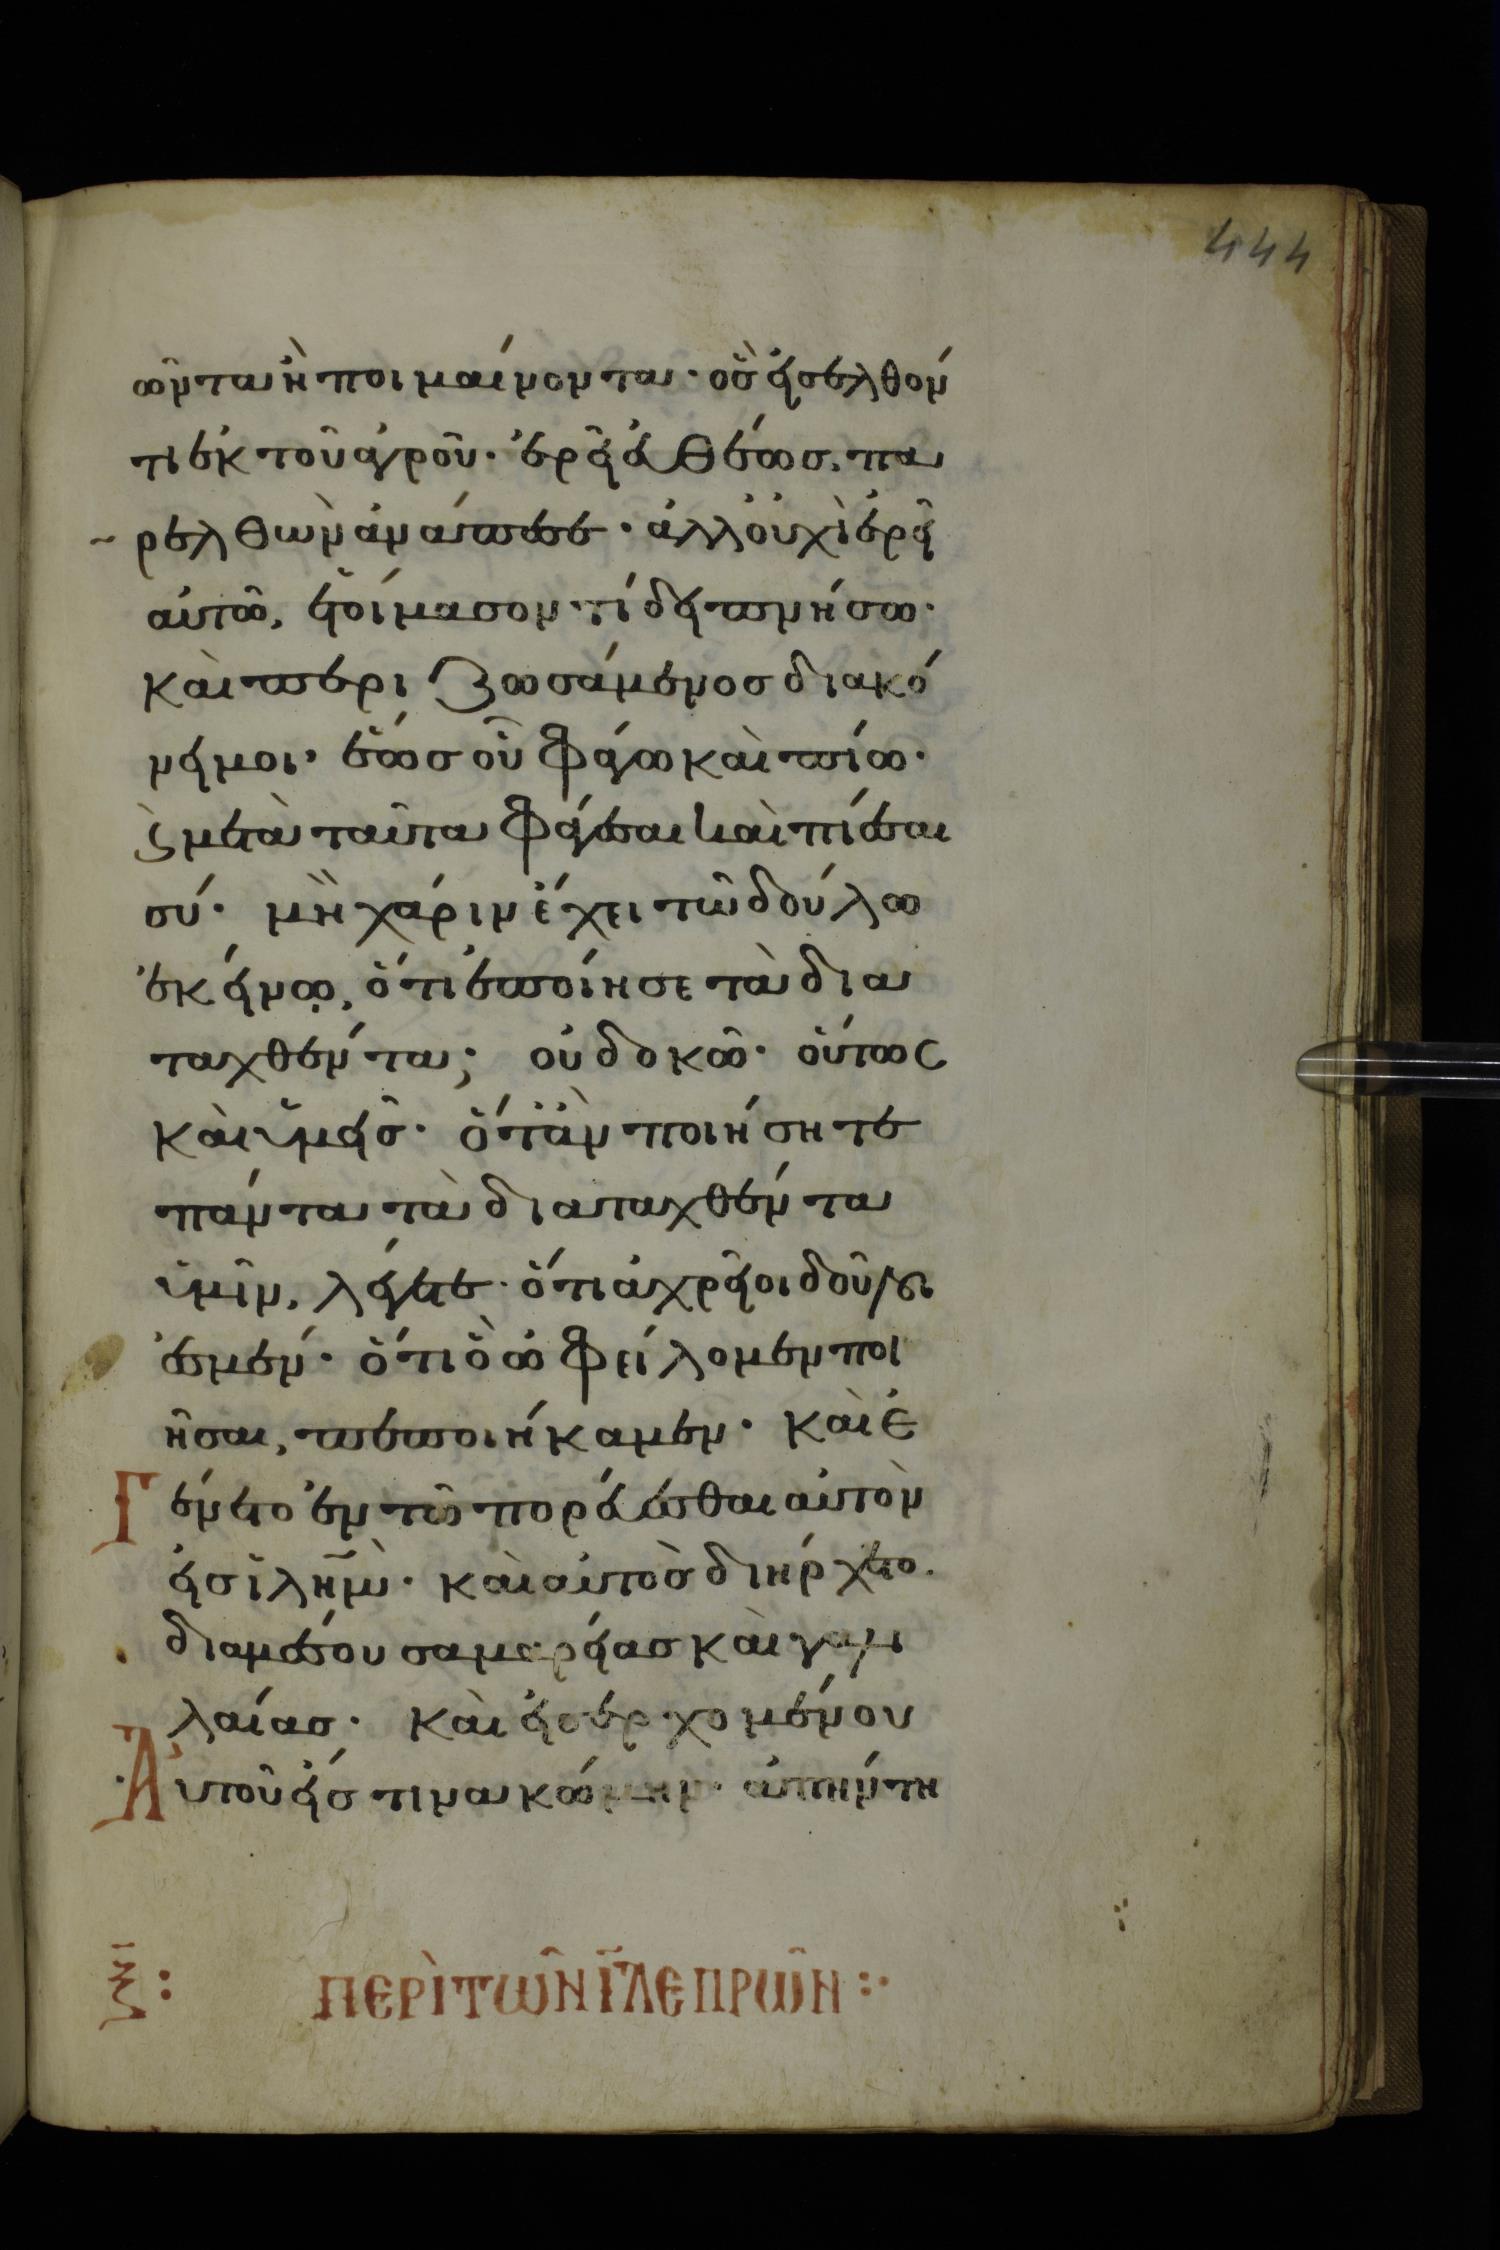 444
ῶντα ἢ ποιμαίνοντα· ὃς εἰσελθόν
τι ἐκ τοῦ ἀγροῦ· ἐρεῖ εὐθέως, πα
ρελθὼν ἀνάπεσε· ἀλλ' οὐχὶ ἐρεῖ
αὐτῶ, ἑτοίμασον τί δειπνήσω·
καὶ περιζωσάμενος διακό
νει μοι· ἕως οὗ φάγω καὶ πίω·
ϛ μετὰ ταῦτα φάγεσαι καὶ πίεσαι
σύ· μὴ χάριν ἔχει τῶ δούλω
ἐκείνω, ὅτι ἐποίησε τὰ δια
ταχθέντα; οὐ δοκῶ· οὕτως
καὶ ὑμεῖς· ὅταν ποιήσητε
πάντα τὰ διαταχθέντα
ὑμῖν, λέγετε· ὅτι ἀχρεῖοι δοῦλοι
ἐσμέν· ὅτι ὃ ὠφείλομεν ποι
ῆσαι, πεποιήκαμεν· καὶ ἐ
Γένετο ἐν τῶ πορεύεσθαι αὐτὸν
εἰς ἰλῆμ· καὶ αὐτὸς διήρχετο
διαμέσου σαμαρείας καὶ γαλι
λαίας· καὶ εἰσερχομένου
Αὐτοῦ εἴς τινα κώμην· ἀπήντη
ξ: ΠΕΡῚ ΤΩ͂Ν Ι̅ ΛΕΠΡΩ͂Ν :·